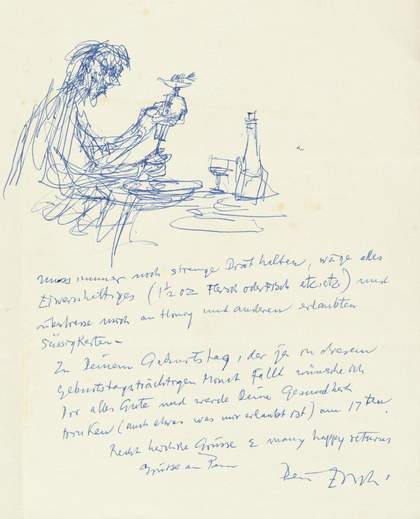 muss immer noch strenge Diät halten, wäge alles
Eiweisshältiges (1½ oz Fleisch oder Fisch etc etc) und
mich an Honig und anderen erlaubten
Süssigkeiten –
Zu Deinem Geburtstag, der ja in diesem
geburtstagsträchtigen Monat fällt wünsche ich
Dir alles Gute und werde Deine Gesundheit
trinken (auch etwas was mir erlaubt ist) am 17ten.
Recht herzliche Grüsse & many happy returns
Grüsse an
Dein